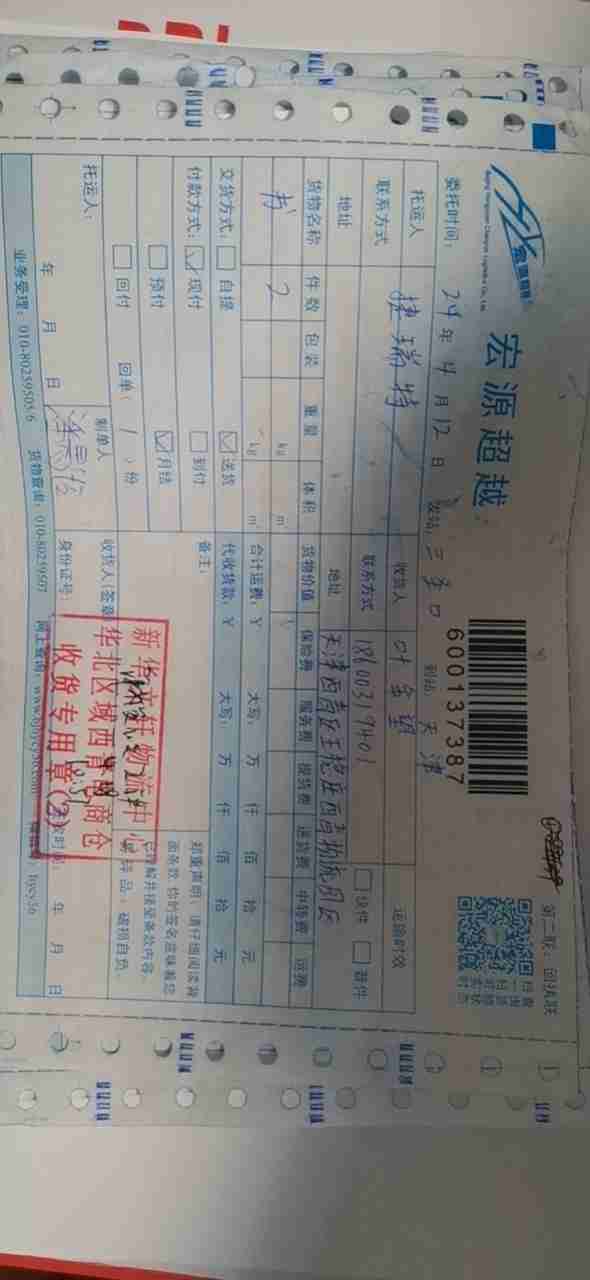 宏源超越
600137387
第二联：回执联
委托时间：24年4月12日 发站：三多口 到站：天津
托运人 捷瑞特 收货人 叶金望 运输时效
联系方式 联系方式 18600319401 快件 普件
地址 地址 天津西青区王稳庄西青物流园区
货物名称 件数 包装 重量 体积 货物价值 保险费 服务费 提货费 送货费 中转费
书 2 kg m
kg m 合计运费：￥ 大写： 万 仟 佰 拾 元
交货方式： 自提 送货 代收货款：￥ 大写： 万 仟 佰 拾 元
付款方式： 现付 到付 备注：
预付 月结
回付 回单（ / ）份
郑重声明：请仔细阅读背
面条款，你的签名意味着您
已理解并接受条款内容。
易碎品，破损自负。
托运人： 制单人 收货人（签章
年 月 日 身份证号： 年 月 日
新华文轩物流中心
华北区域西青电商仓
收货专用章(2)
业务受理：010-80259505/6 货物查询：010-80259507 网上查询：www.bjhycy56.com hycy56